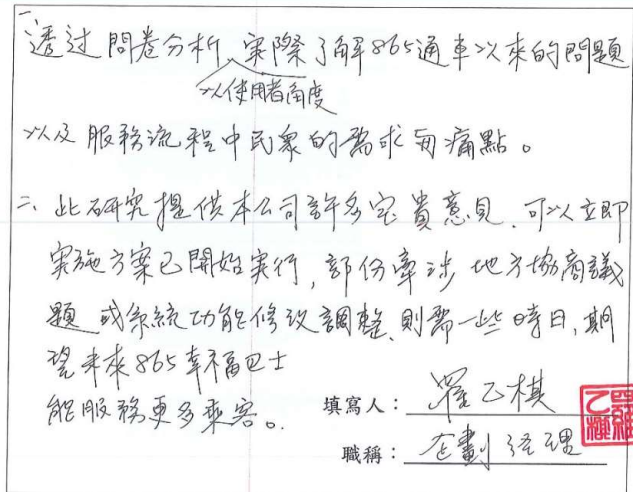 一、
透过問卷分析、実際了解865通車以來的問題
以使用者角度
以及服務流程中民衆的需求与痛點。
二、此研究提供本公司許多宝貴意見、可以立即
実施方案已開始実行,部份牽涉地方協商議
題或系統功能修改調整、則需一些時日,期
望未來865幸福巴士
能服務更多乘客。
填寫人:羅乙棋
職稱:企劃經理